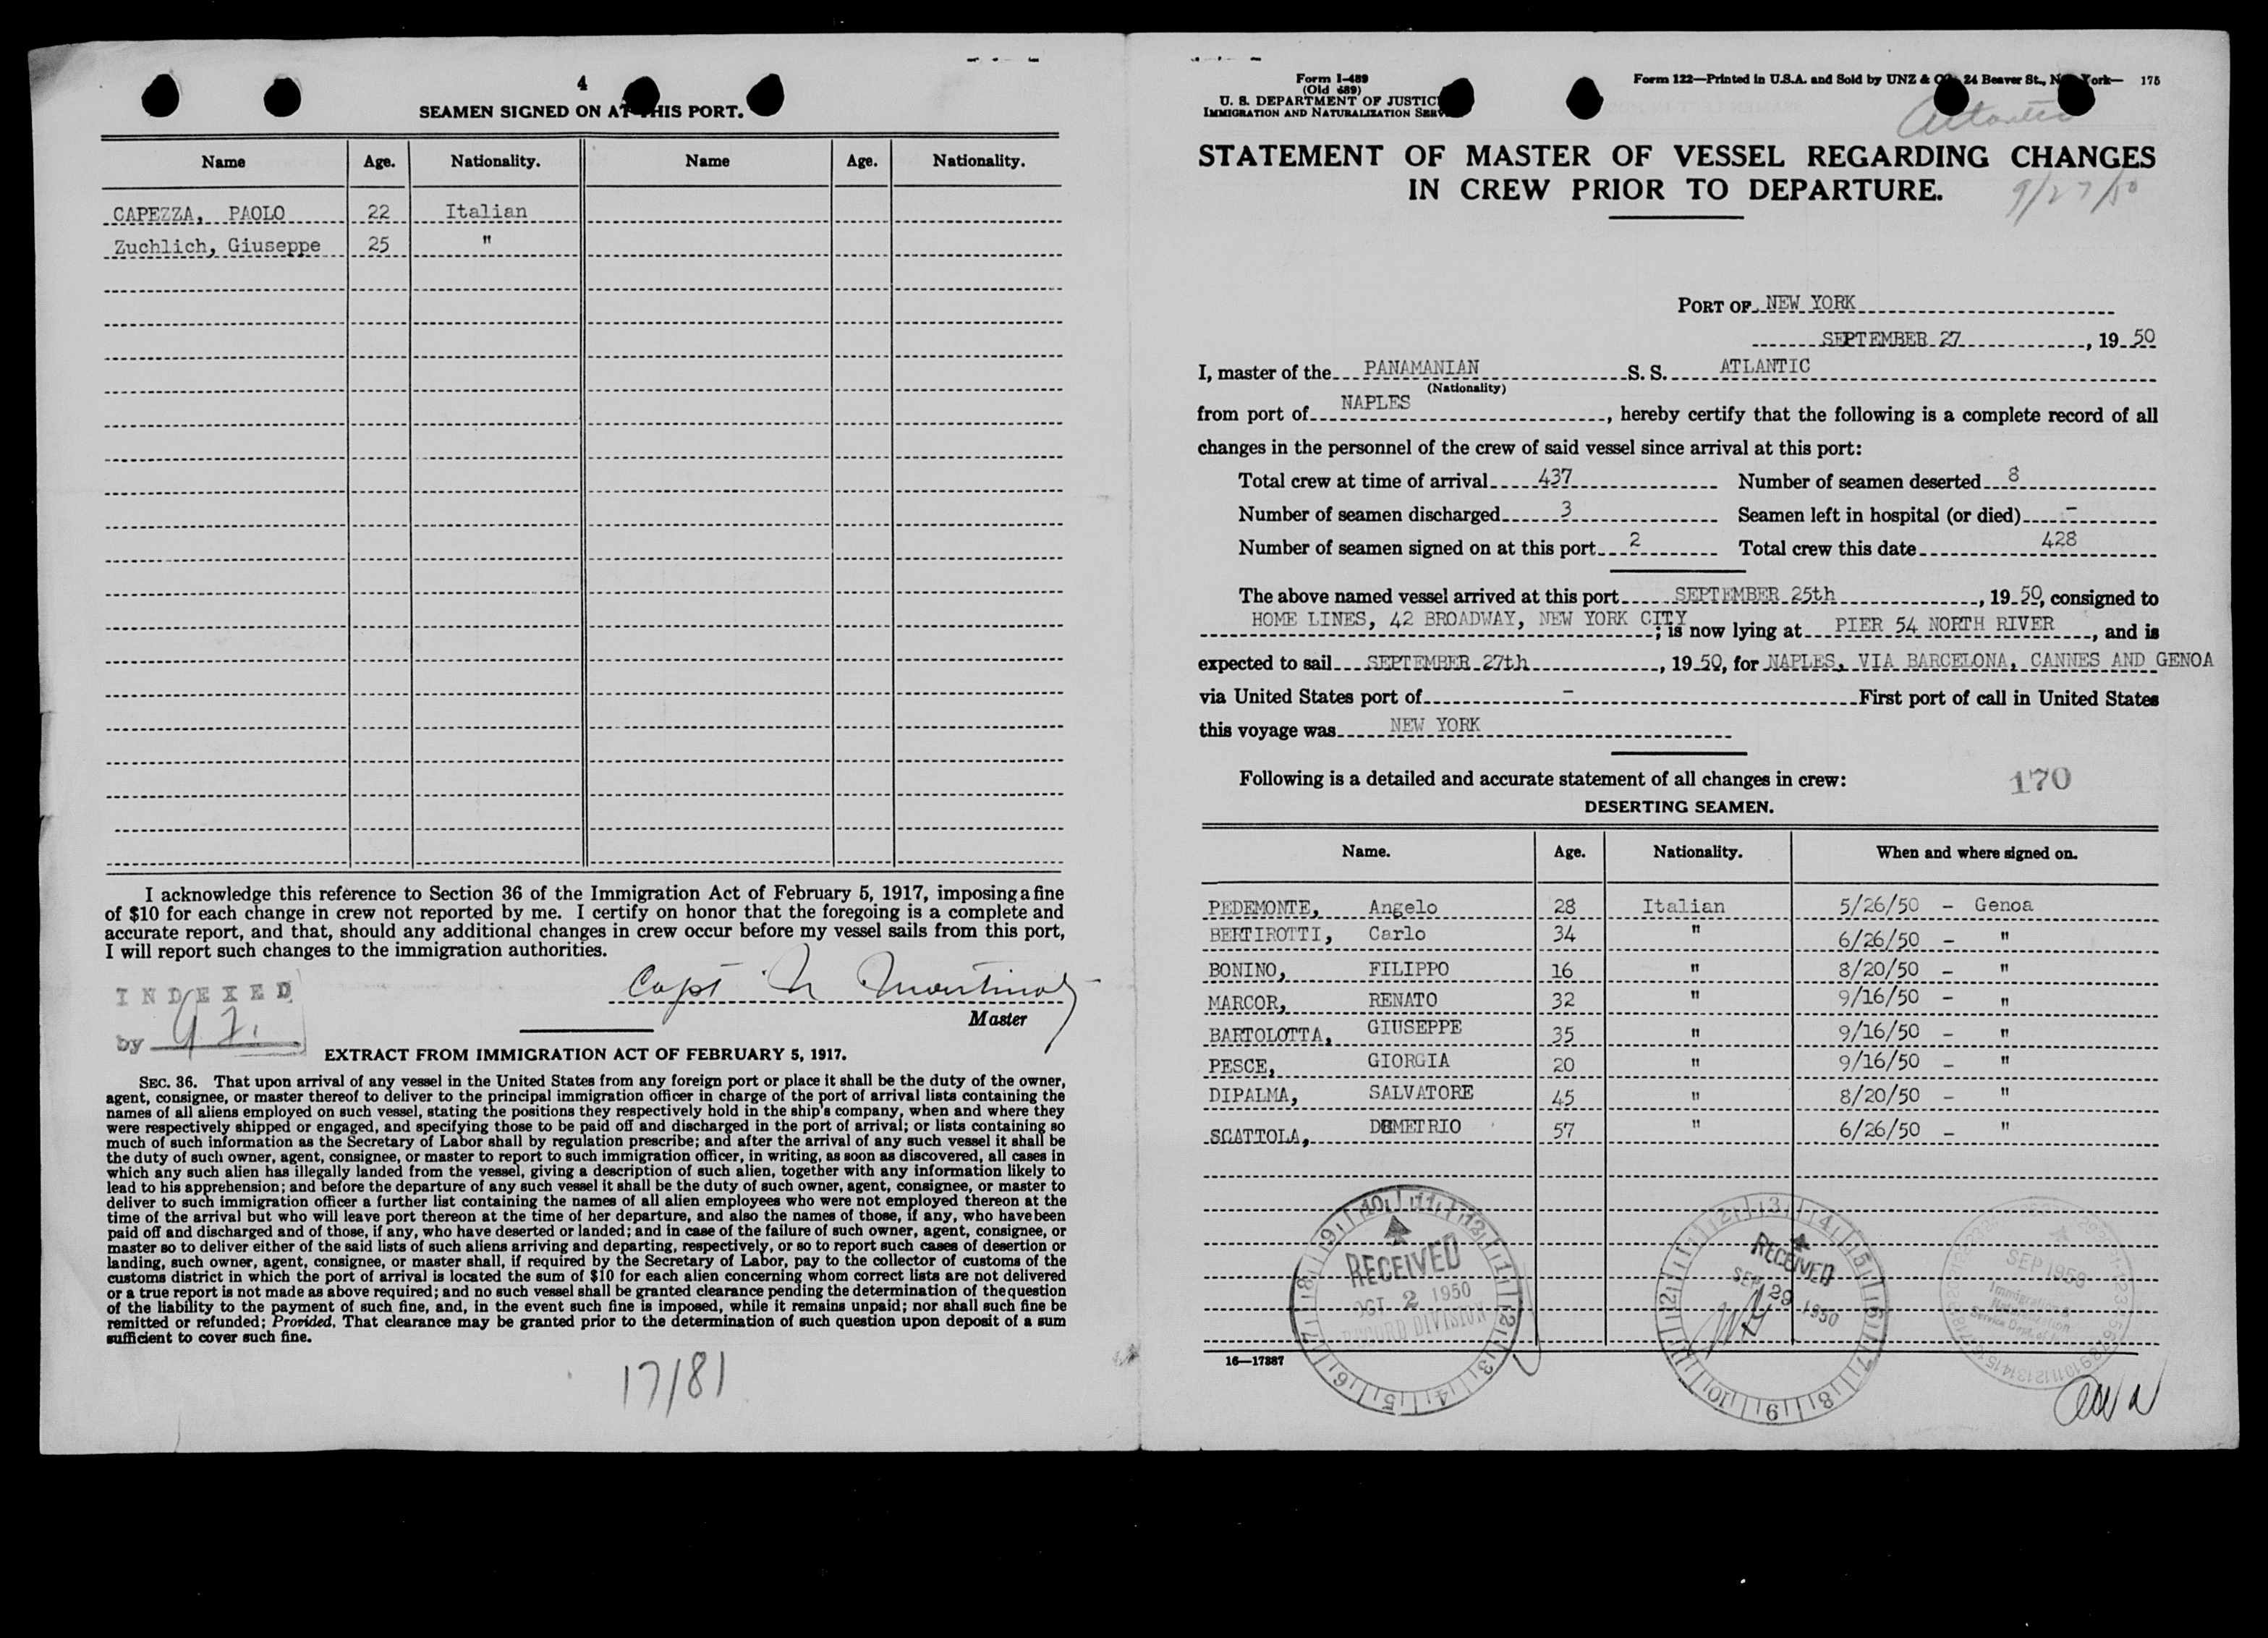 4
SEAMEN SIGNED ON AT THIS PORT.
Name Age. Nationality. Name Age. Nationality.
CAPEZZA, PAOLO 22 Italian
Zuchlich, Giuseppe 25 "
I acknowledge this reference to Section 36 of the Immigration Act of February 5, 1917, imposing a fine
of $10 for each change in crew not reported by me. I certify on honor that the foregoing is a complete and
accurate report, and that, should any additional changes in crew occur before my vessel sails from this port,
I will report such changes to the immigration authorities.
INDEXED
by
Capt
Master
EXTRACT FROM IMMIGRATION ACT OF FEBRUARY 5, 1917.
SEC. 36. That upon arrival of any vessel in the United States from any foreign port or place it shall be the duty of the owner,
agent, consignee, or master thereof to deliver to the principal immigration officer in charge of the port of arrival lists containing the
names of all aliens employed on such vessel, stating the positions they respectively hold in the ship's company, when and where they
were respectively shipped or engaged, and specifying those to be paid off and discharged in the port of arrival; or lists containing so
much of such information as the Secretary of Labor shall by regulation prescribe; and after the arrival of any such vessel it shall be
the duty of such owner, agent, consignee, or master to report to such immigration officer, in writing, as soon as discovered, all cases in
which any such alien has illegally landed from the vessel, giving a description of such alien, together with any information likely to
lead to his apprehension; and before the departure of any such vessel it shall be the duty of such owner, agent, consignee, or master to
deliver to such immigration officer a further list containing the names of all alien employees who were not employed thereon at the
time of the arrival but who will leave port thereon at the time of her departure, and also the names of those, if any, who have been
paid off and discharged and of those, if any, who have deserted or landed; and in case of the failure of such owner, agent, consignee, or
master so to deliver either of the said lists of such aliens arriving and departing, respectively, or so to report such cases of desertion or
landing, such owner, agent, consignee, or master shall, if required by the Secretary of Labor, pay to the collector of customs of the
customs district in which the port of arrival is located the sum of $10 for each alien concerning whom correct lists are not delivered
or a true report is not made as above required; and no such vessel shall be granted clearance pending the determination of the question
of the liability to the payment of such fine, and, in the event such fine is imposed, while it remains unpaid; nor shall such fine be
remitted or refunded; Provided, That clearance may be granted prior to the determination of such question upon deposit of a sum
sufficient to cover such fine.
17/81
Form I-489
(Old 689)
U. S. DEPARTMENT OF JUSTICE
IMMIGRATION AND NATURALIZATION SERV
Form 122—Printed in U.S.A. and Sold by UNZ & CO., 24 Beaver St., New York— 175
Atlantic
STATEMENT OF MASTER OF VESSEL REGARDING CHANGES
IN CREW PRIOR TO DEPARTURE.
9/27/50
PORT OF NEW YORK
SEPTEMBER 27, 19 50
I, master of the PANAMANIAN S. S. ATLANTIC
(Nationality)
from port of NAPLES, hereby certify that the following is a complete record of all
changes in the personnel of the crew of said vessel since arrival at this port:
Total crew at time of arrival 437 Number of seamen deserted 8
Number of seamen discharged 3 Seamen left in hospital (or died) -
Number of seamen signed on at this port 2 Total crew this date 428
The above named vessel arrived at this port SEPTEMBER 25th, 19 50, consigned to
HOME LINES, 42 BROADWAY, NEW YORK CITY; is now lying at PIER 54 NORTH RIVER, and is
expected to sail SEPTEMBER 27th, 19 50, for NAPLES, VIA BARCELONA, CANNES AND GENOA
via United States port of - First port of call in United States
this voyage was NEW YORK
Following is a detailed and accurate statement of all changes in crew:
170
DESERTING SEAMEN.
Name. Age. Nationality. When and where signed on.
PEDEMONTE, Angelo 28 Italian 5/26/50 - Genoa
BERTIROTTI, Carlo 34 " 6/26/50 - "
BONINO, FILIPPO 16 " 8/20/50 - "
MARCOR, RENATO 32 " 9/16/50 - "
BARTOLOTTA, GIUSEPPE 35 " 9/16/50 - "
PESCE, GIORGIA 20 " 9/16/50 - "
DIPALMA, SALVATORE 45 " 8/20/50 - "
SCATTOLA, DEMETRIO 57 " 6/26/50 - "
RECEIVED
OCT 2 1950
RECORD DIVISION
RECEIVED
SEP 29 1950
SEP 1950
Immigration &
Naturalization
Service Dept. of
16—17887